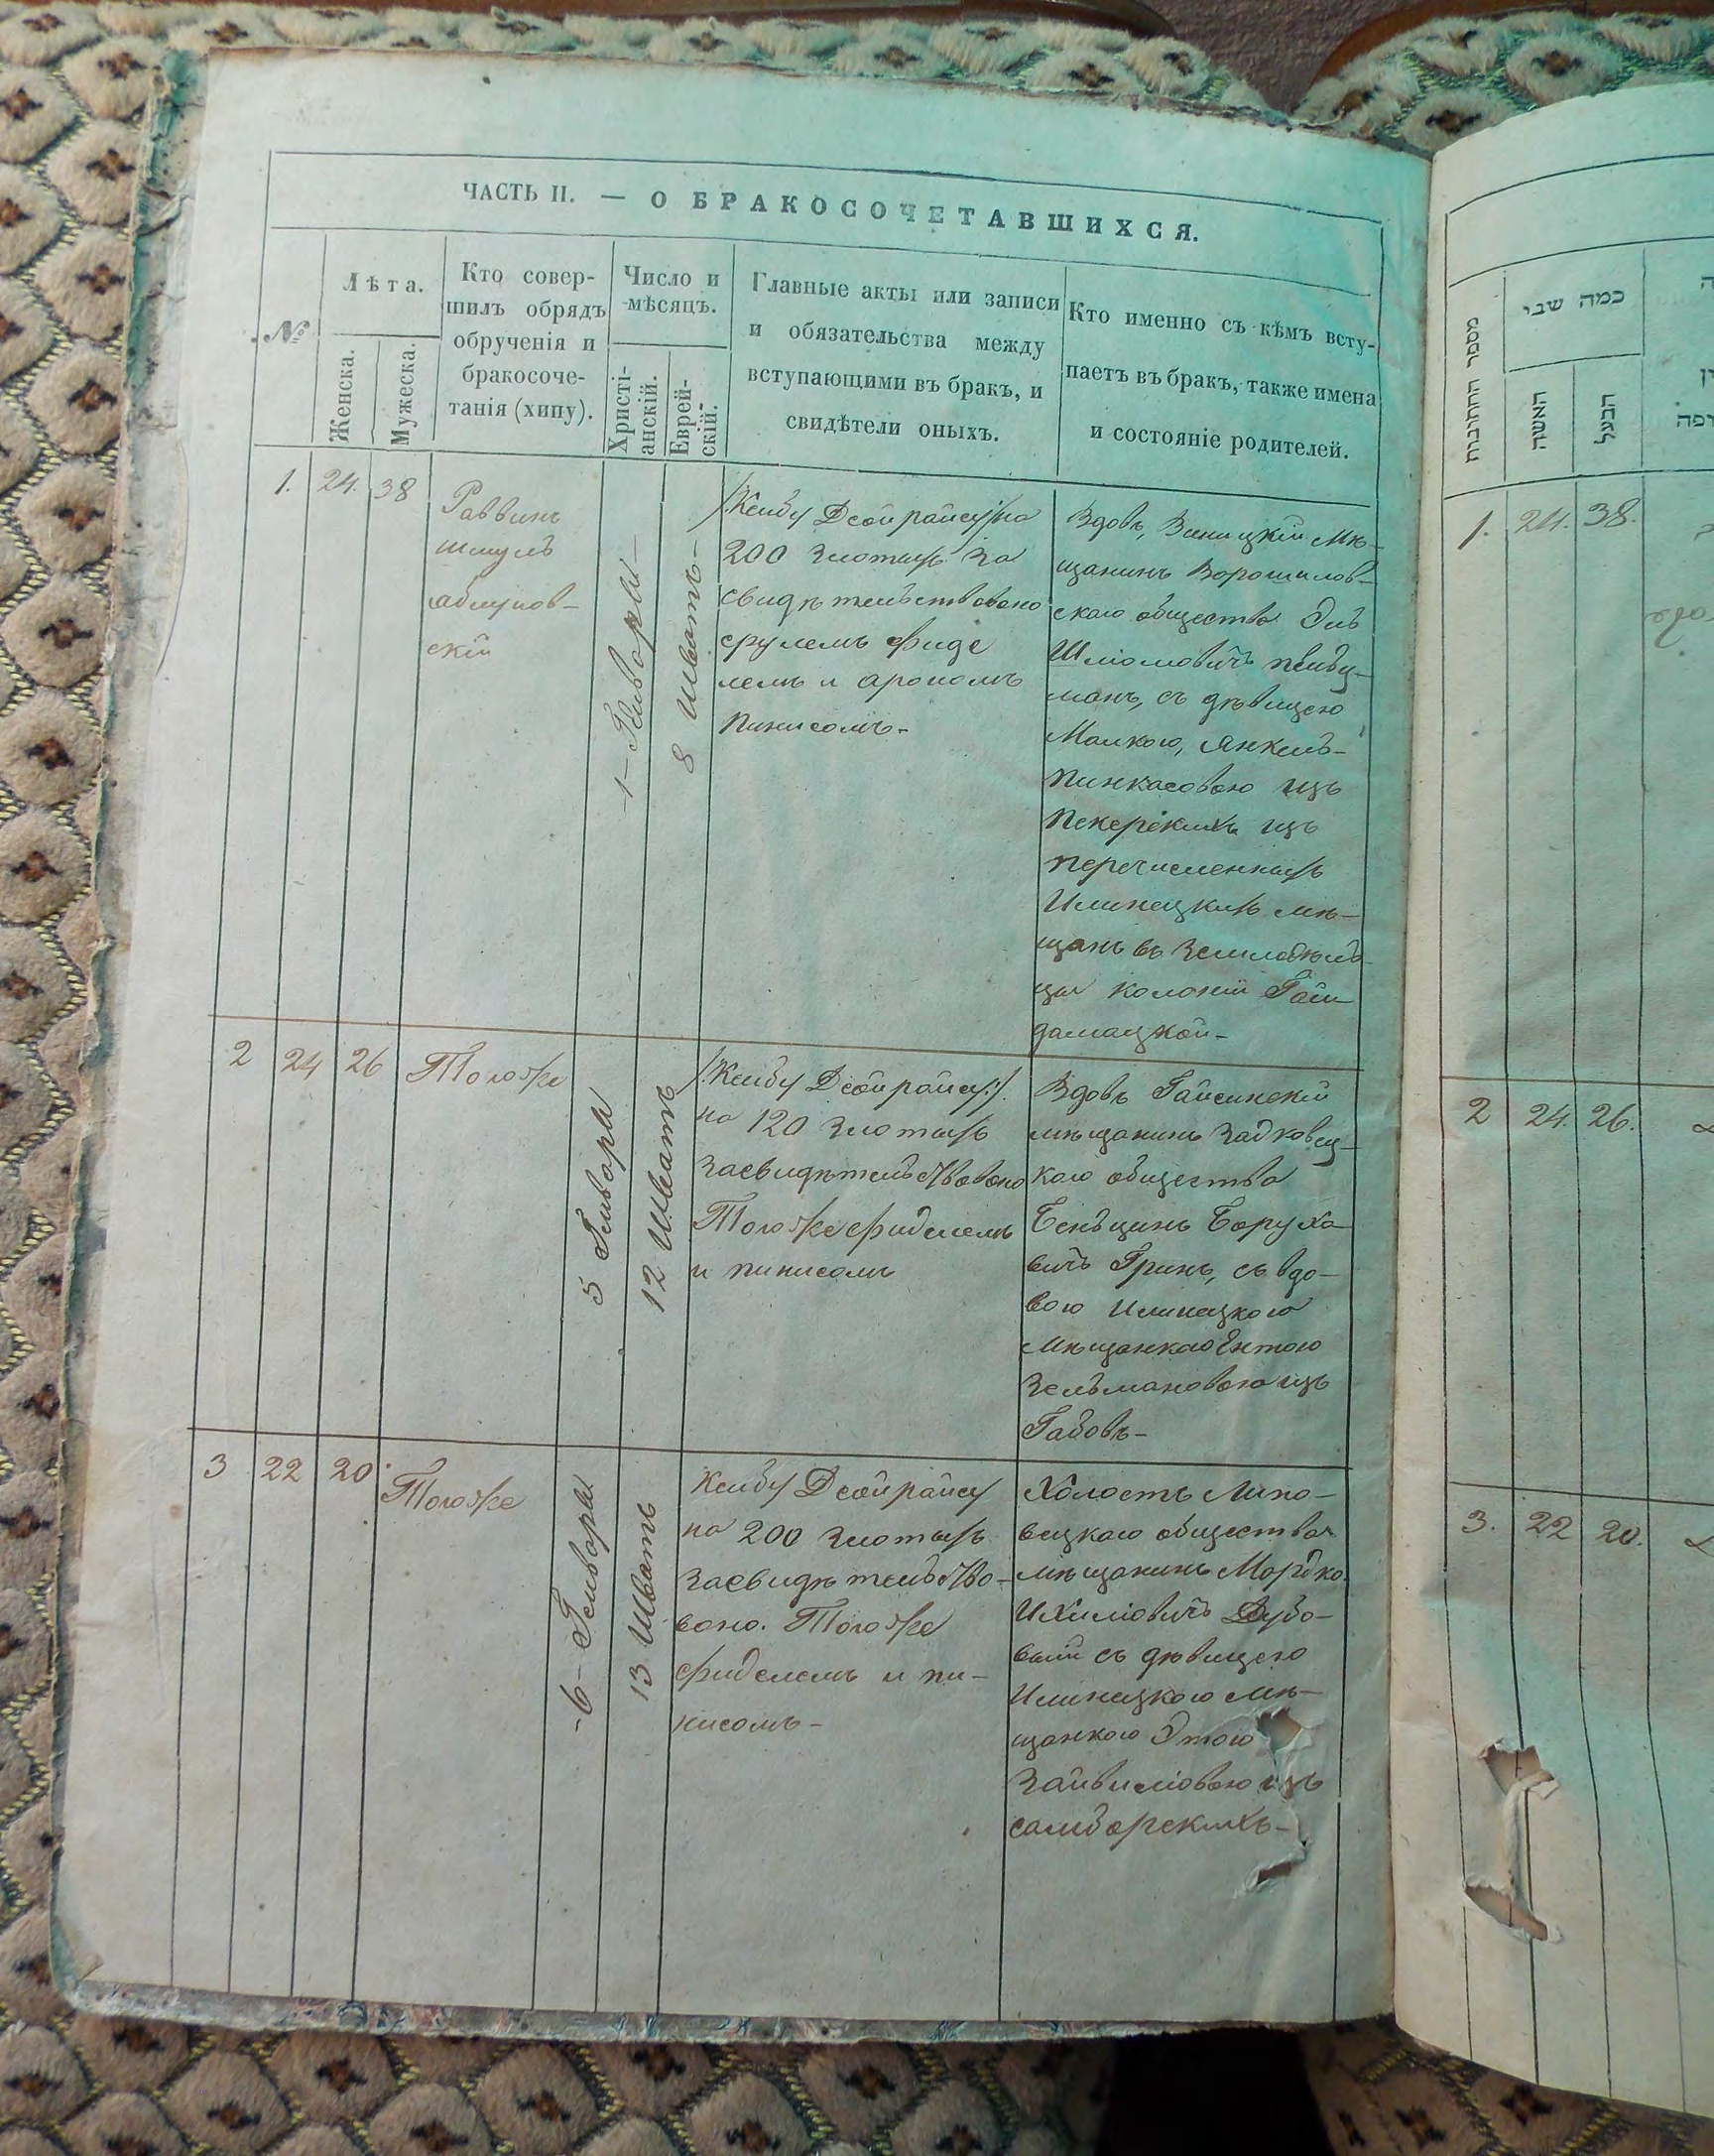 ЧАСТЬ II. — О БРАКОСОЧЕТАВШИХСЯ.
№
Лѣта.
Женска.
Мужеска.
Кто совер-
шилъ обрядъ
обрученія и
бракосоче-
танія (хипу).
Число и
мѣсяцъ.
Христі-
анскій.
Еврей-
скій.
Главные акты или записи
и обязательства между
вступающими въ бракъ, и
свидѣтели оныхъ.
Кто именно съ кѣмъ всту-
паетъ въ бракъ, также имена
и состояніе родителей.
1. 24. 38
Раввинъ
шмуль
скій
1 Генваря
8 Шватъ
на
200 злотыхъ за
свидѣтельствовано
срулемъ фиде
лемъ и арономъ
пинисомъ
Вдовъ, Виницкій мѣ-
щанинъ Ворошилов-
скаго общества Эль
Шліомовичъ
манъ, съ дѣвицею
Малкою, Янкель-
Пинкасовою изъ
Пекерскихъ изъ
перечисленныхъ
Илинецкихъ мѣ-
щанъ въ Земледѣль-
цы колоніи Гай
дамацкой
2 24 26
Тогоже
5 Генваря
12 Шватъ
на 120 злотыхъ
засвидѣтельствовано
Тогоже фиделемъ
и пинисомъ
Вдовъ Гайсинскій
мѣщанинъ Задковец-
каго общества
Беньцинъ Боруха
вичъ Гринъ, съ вдо-
вою Илинецкою
мѣщанкою Ентою
Зельмановою изъ
3 22 20
Тогоже
-6- Генваря
13 Шватъ
на 200 злотыхъ
засвидѣтельство-
вано. Тогоже
фиделемъ и пи-
нисомъ-
Холостъ Липо-
вецкаго общества
мѣщанинъ Мордко
Ихиліовичъ Дубо-
вый съ дѣвицею
Илинецкою мѣ-
щанкою Этою
Зайвиліовою изъ
самборскихъ-
מספר החתונות
כמה שני
האשה
הבעל
1. 24. 38.
2 24. 26.
3. 22 20.